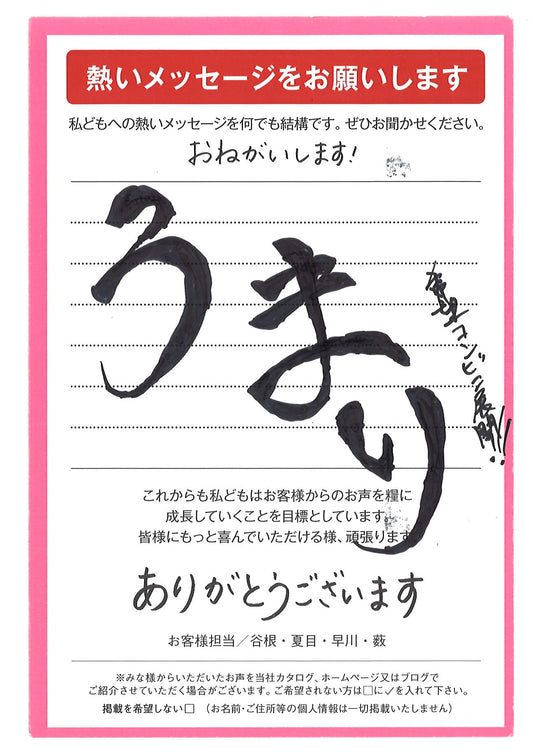 熱いメッセージをお願いします
私どもへの熱いメッセージを何でも結構です。ぜひお聞かせください。
おねがいします!
うまり
希望コンビニ展開!!
これからも私どもはお客様からのお声を糧に
成長していくことを目標としています。
皆様にもっと喜んでいただける様、頑張ります。
ありがとうございます
お客様担当／谷根・夏目・早川・薮
※みな様からいただいたお声を当社カタログ、ホームページ又はブログで
ご紹介させていただく場合がございます。ご希望されない方は□に✓を入れて下さい。
掲載を希望しない□ （お名前・ご住所等の個人情報は一切掲載いたしません）